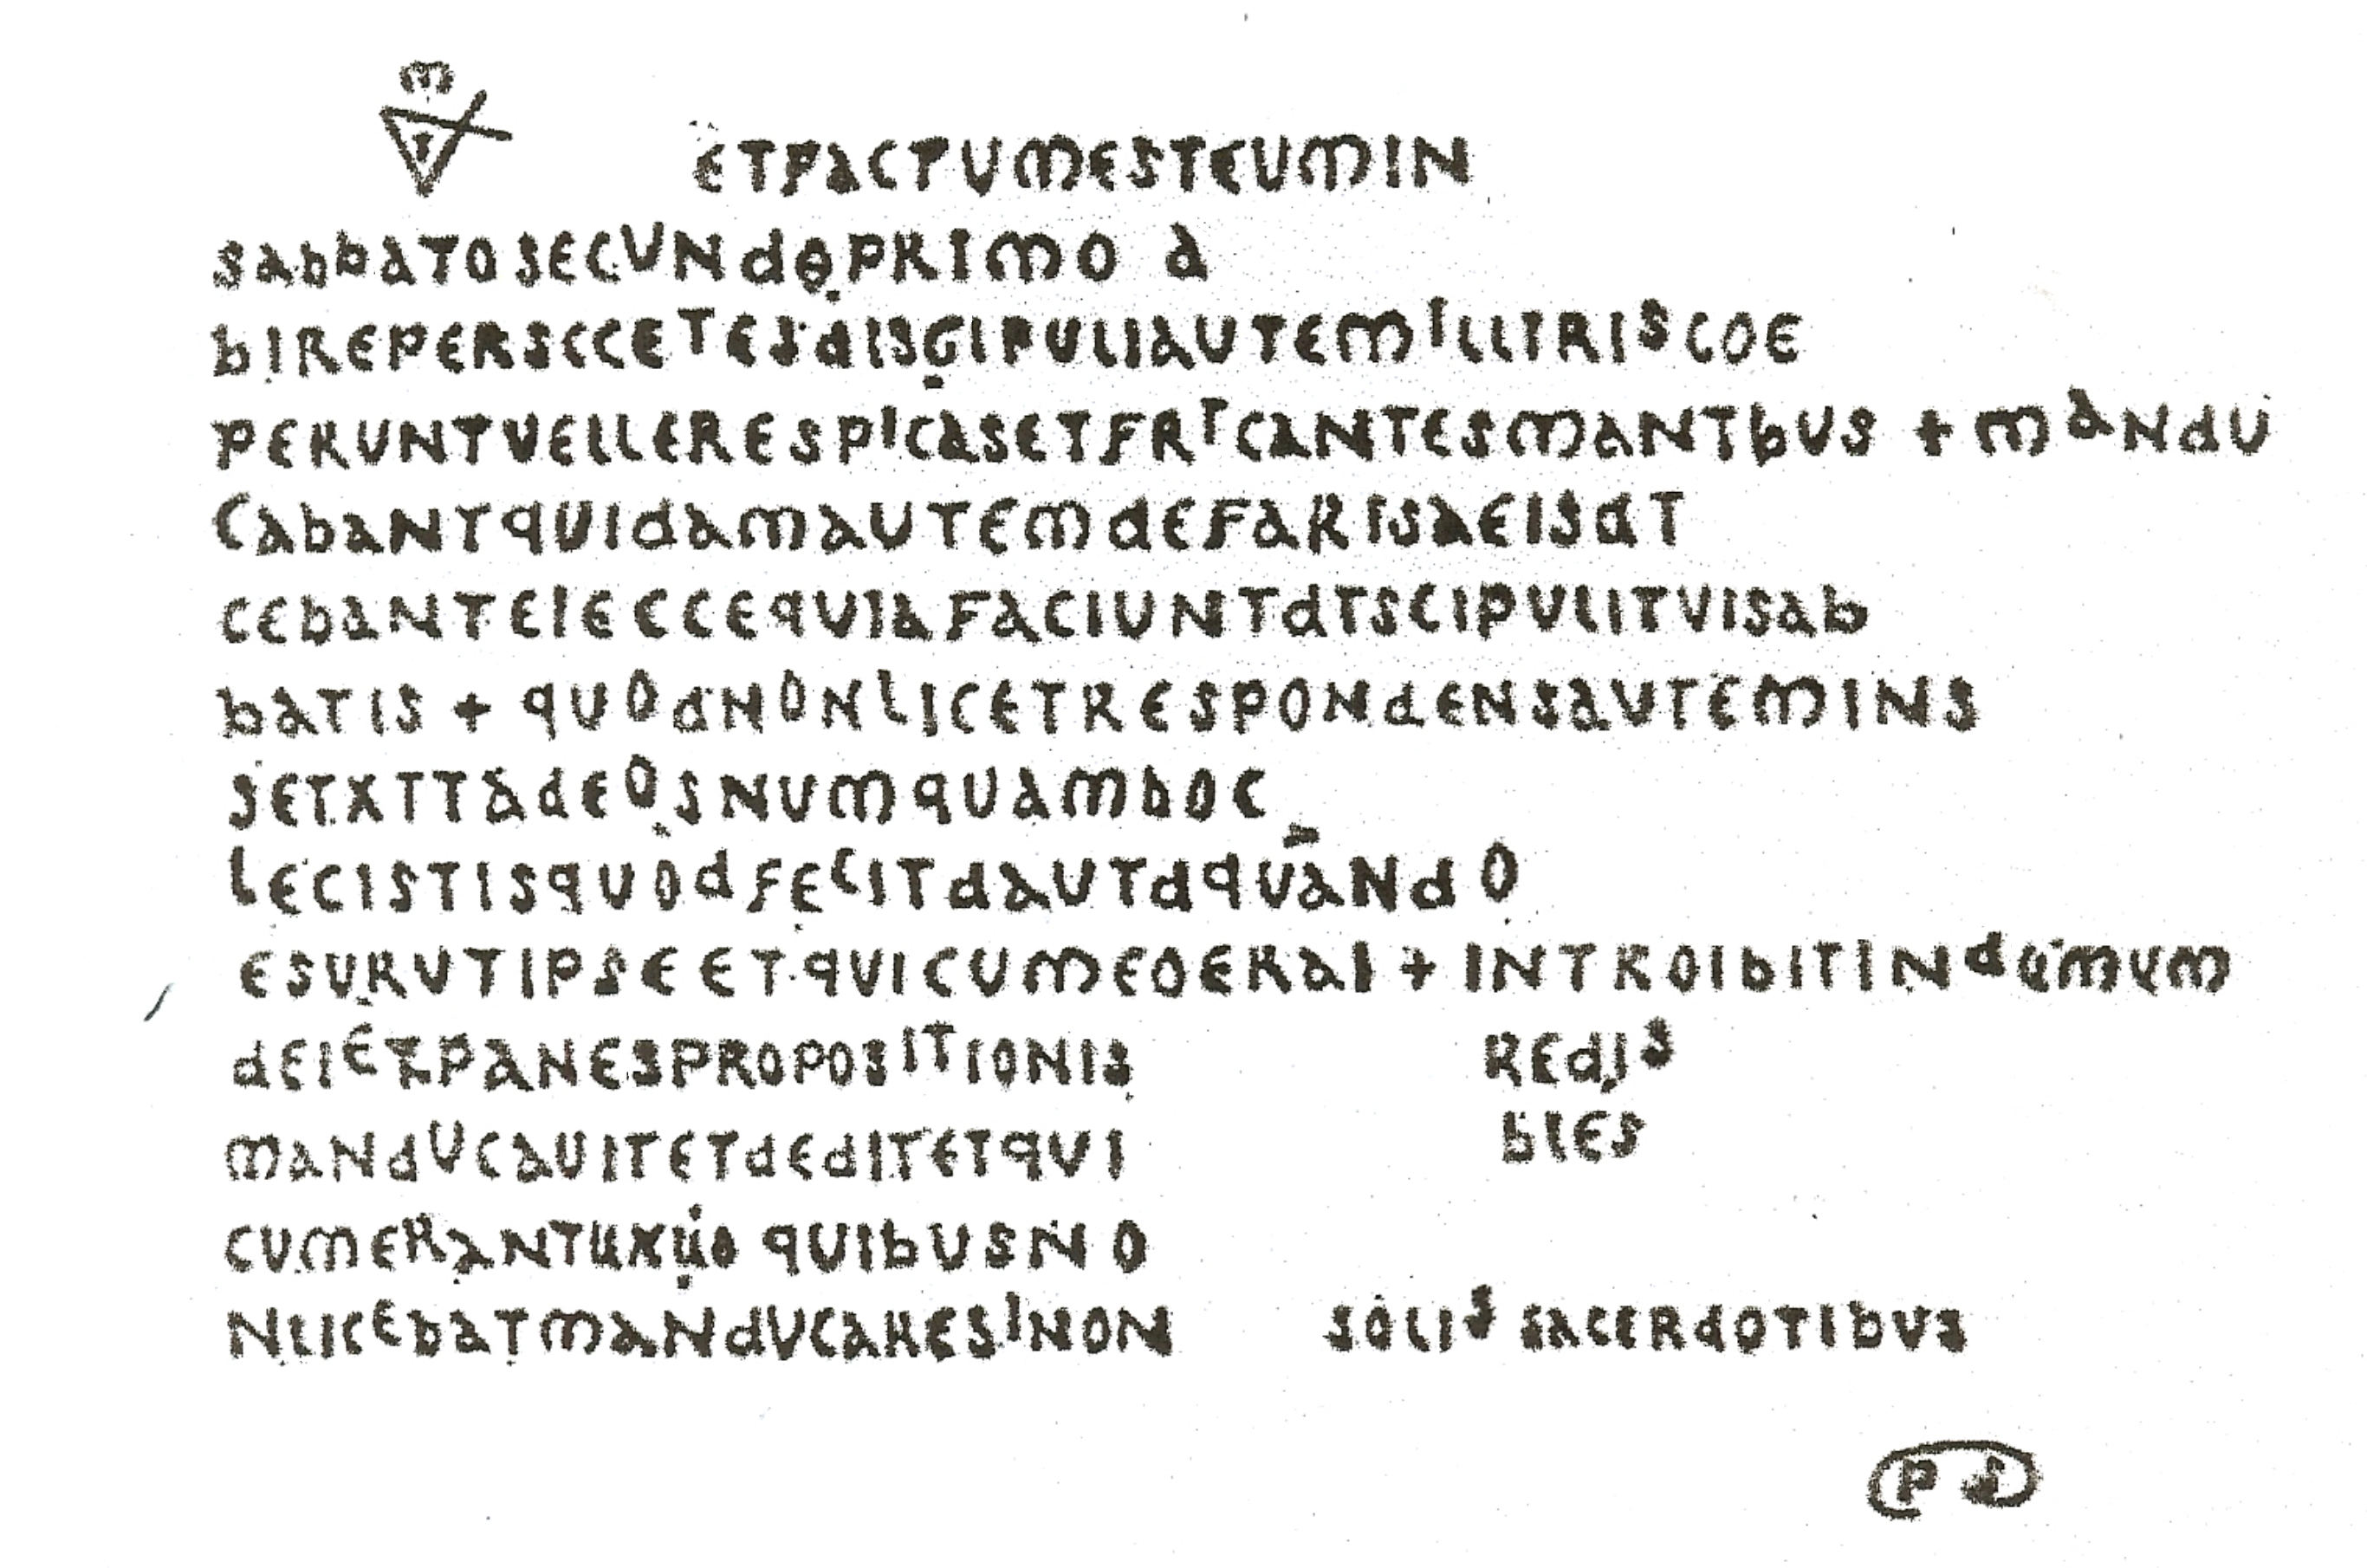 ETFACTUMESTEUMIN
SABBATOSECUNDOPRIMO A
BIREPERSCCETESDISGIPULIAUTEMILLIRISCOE
PERUNTVELLERESPICASETFRICANTESMANTBUS + MANDU
CABANTQUIDAMAUTEMDEFARISAEISDT
CEBANTEIECCEQUIAFACIUNTDTSCIPULITVISAB
BATIS + QUODNONLICETRESPONDENSAUTEMINS
SETXTTADEOSNUMQUAMBOC
LECISTISQUODFECITDAUTDQUANDO
ESURUTIPSEETQVICUMEOERAI + INTROIBITINDUMUM
DEIETPANESPROPOSITIONIS REDIS
MANDUCAUITETDEDITETQVI BLES
CUMERANTUXUO QUIBUSNO
NLICEBATMANDVCARESINON SOLIS SACERDOTIBVS
P S